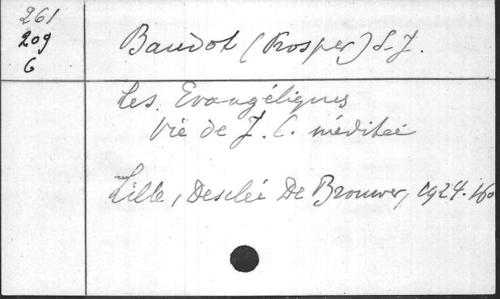 261
209
6
Baudot (Prosper) S.J.
Les Evangéliques
Vie de J. C. méditée
Lille, Desclée De Brouwer, 1924. 16o